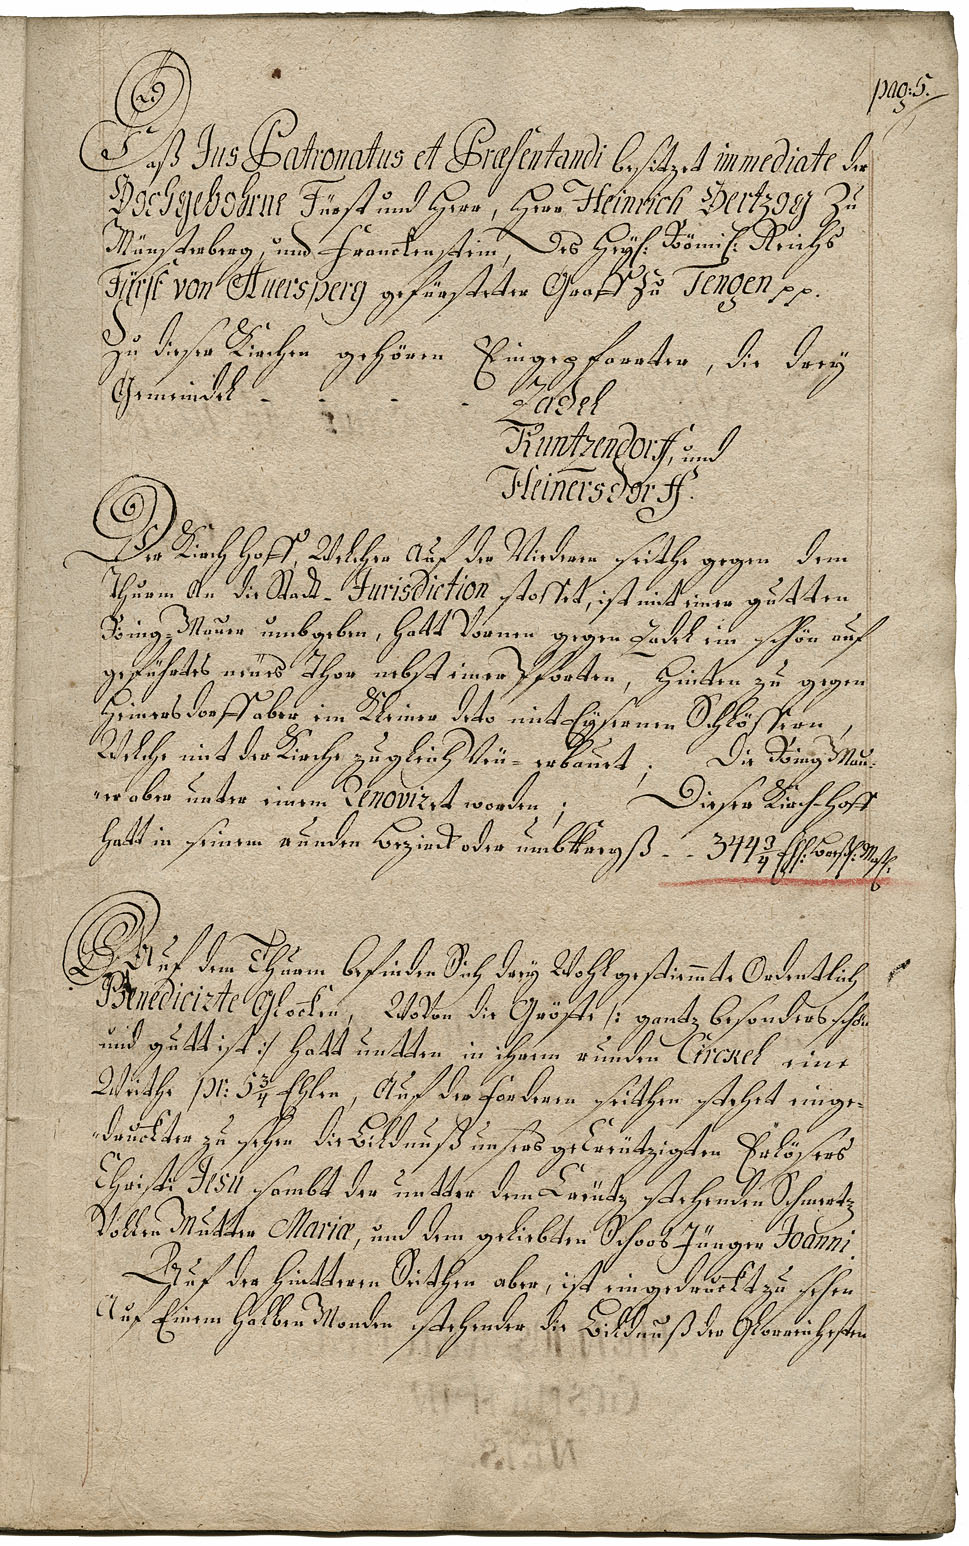 pag: 5.
Daß Jus Patronatus et Præsentandi besitzet immediate der
Hochgebohrne Fürst und Herr, Herr Heinrich Hertzog Zu
Münsterberg, und Franckenstein, des Heyl: Römis: Reichs
Fürst von Auersperg gefürsteter Graff Zu Tengen pp.
Zu dieser Kirchen gehören Eingepfarrter, die drey
Gemeindel - - - - Zadel
Kuntzendorff, und
Heinersdorff.
Der Kirch Hoff, Welcher auf der Niedern seithe gegen dem
Thurm An die Stadt-Jurisdiction stosset, ist mit einer gutten
Ring-Mauer umbgeben, hatt Vornen gegen Zadel ein schön auf
geführtes neües Thor nebst einer Pforten, Hinten zu gegen
Heinersdorff aber ein Kleiner deto mit Eysernen Schlössern,
Welche mit der Kirche zugleich Neü-erbauet; Die Ring Mau-
-er aber unter einem Renovizet worden; Dieser Kirch-Hoff
hatt in seinem runden Bezirck oder umbkreyß - - 344 3/4 Ehl: Bressl: Maß:
Auf dem Thurm befinden Sich drey Wohlgestimmte Ordentlich
Benedicirte Glocken, Wovon die Gröste /: gantz besonders schön
und gutt ist :/ hatt untten in ihrem runden Circkel eine
Weithe pr: 5 3/4 Ehlen, Auf der fordern seithen stehet einge-
-druckter zu sehen die Bildnuß unsers geCreützigten Erlösers
Christi Jesu sambt der untter dem Creütz stehenden Schmertz
Vollen Mutter Mariæ, und dem geliebten Schoos Jünger Joanni.
Auf der Hintteren Seithen aber, ist eingedruckt zu sehen
Auf Einem halben Monden stehender die Bildnuß der Glorreichesten